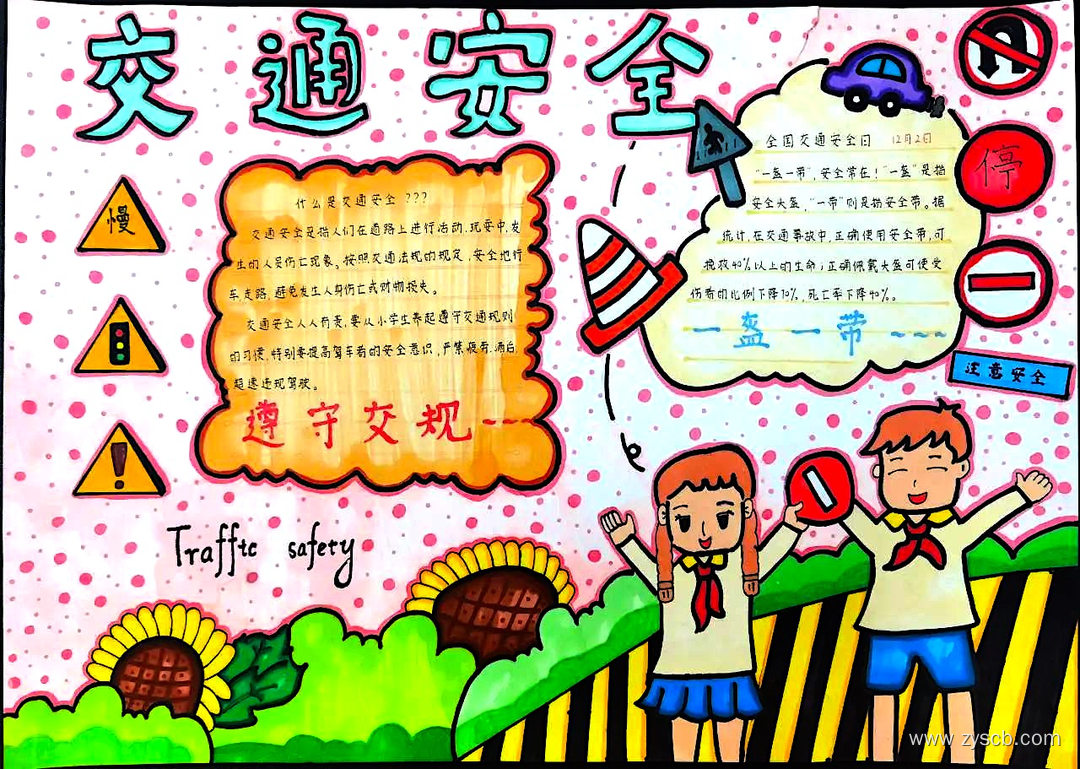 交通安全
慢
什么是交通安全 ???
交通安全是指人们在道路上进行活动、玩耍中,发
生的人员伤亡现象。按照交通法规的规定,安全地行
车走路,避免发生人身伤亡或财物损失。
交通安全人人有责,要从小学生养起遵守交通规则
的习惯,特别要提高驾车者的安全意识,严禁疲劳、酒后
超速违规驾驶。
遵守交规---
Traffic safety
全国交通安全日 12月2日
“一盔一带”,安全常在!“一盔”是指
安全头盔,“一带”则是指安全带。据
统计,在交通事故中,正确使用安全带,可
挽救40%以上的生命;正确佩戴头盔可使受
伤者的比例下降70%,死亡率下降40%。
一盔一带~~~
停
注意安全
www.zyscb.com